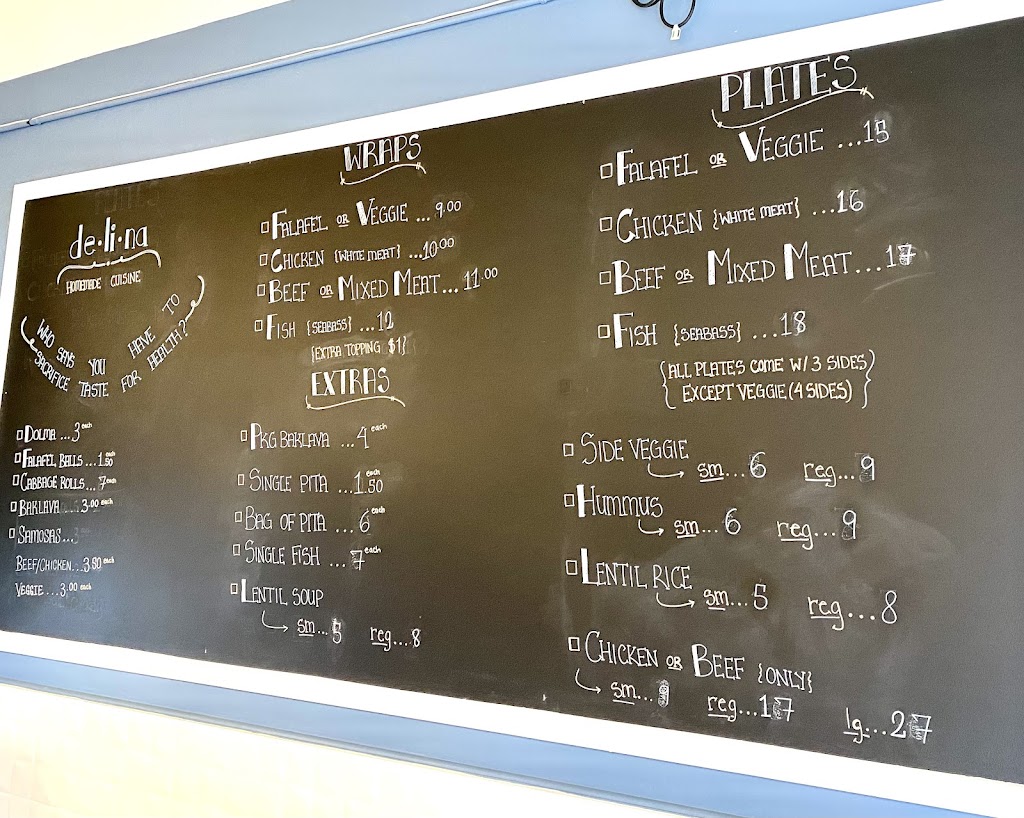 de·li·na
HOMEMADE CUISINE
WHO SAYS YOU HAVE TO
SACRIFICE TASTE FOR HEALTH?
DOLMA ...3 each
FALAFEL BALLS ...1.50 each
CABBAGE ROLLS... 7 each
BAKLAVA ...3.00 each
SAMOSAS...
BEEF/CHICKEN...3.90 each
VEGGIE ...3.00 each
WRAPS
FALAFEL OR VEGGIE ... 9.00
CHICKEN {WHITE MEAT} ...10.00
BEEF OR MIXED MEAT... 11.00
FISH {SEABASS} ...12
{EXTRA TOPPING $1}
EXTRAS
PKG BAKLAVA ...4 each
SINGLE PITA ...1.50 each
BAG OF PITA ...6 each
SINGLE FISH ...7 each
LENTIL SOUP
sm...5 reg...8
PLATES
FALAFEL OR VEGGIE ...15
CHICKEN {WHITE MEAT} ...16
BEEF OR MIXED MEAT...17
FISH {SEABASS} ...18
{ALL PLATES COME W/ 3 SIDES
EXCEPT VEGGIE (4 SIDES)}
SIDE VEGGIE
sm...6 reg...9
HUMMUS
sm...6 reg...9
LENTIL RICE
sm...5 reg...8
CHICKEN OR BEEF {ONLY}
sm...9 reg...17 lg...27